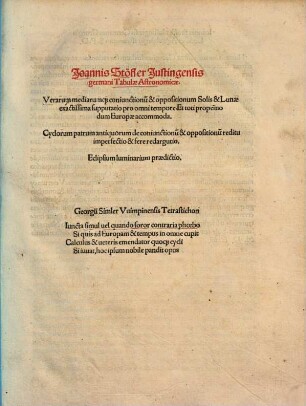 Joannis Stöfler Justingensis
germani Tabulæ Astronomicæ.
Verarum mediarumque coniunctionū & oppositionum Solis & Lunæ
exactissima supputatio pro omni tempore
dum Europæ accommoda.
Cyclorum patrum antiquorum de coniunctionū & oppositionū reditu
imperfectio & fere redargutio.
Eclipsium luminarium prædictio.
Georgii Simler Vuimpinensis Tetrastichon
Iuncta simul vel quando soror contraria phœbo
Si quis ad Europam & tempus in omne cupit
Calculus & ueteris emendator quoque cycli
Si iuuat, hoc ipsum nobile pandit opus